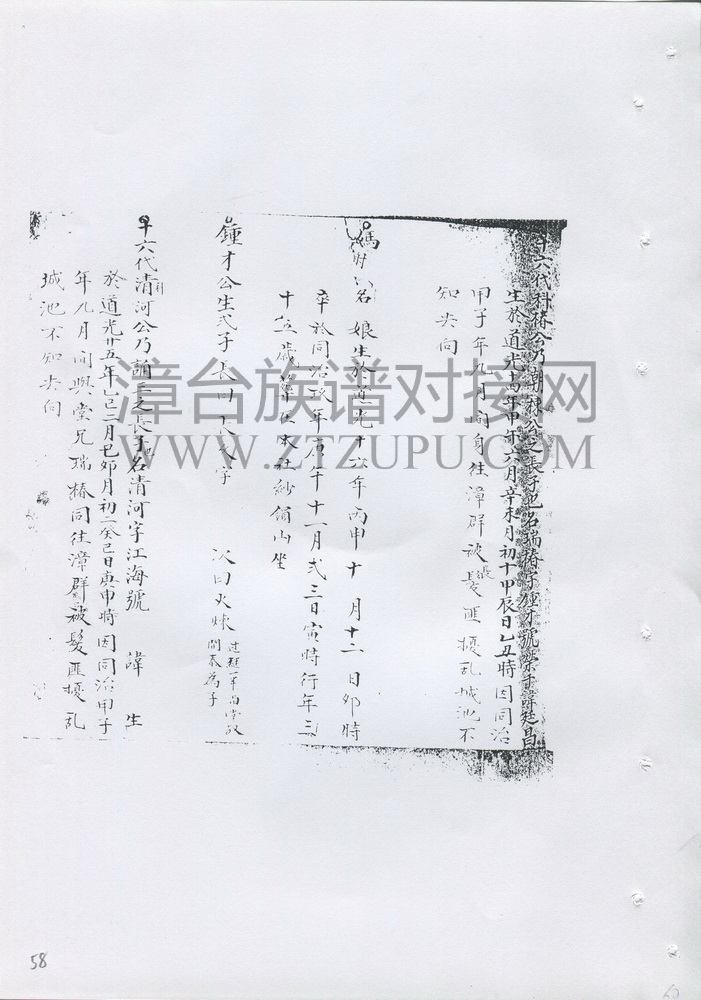 十六代科椿公乃朝公之長子也名瑞椿字鍾才號榮諱廷昌
生於道光十四年甲午六月辛未月初十甲辰日乙丑時因同治
甲子年九月間身往漳群被長髮匪擾乱城池不
知去向
媽 名 娘生於道光十六年丙申十月十二日卯時
卒於同治玖年庚午十一月弍三日寅時行年三
十五歲葬在本社紗帽山坐
鍾才公生弍子長曰天 字 次曰火煉
十六代清河公乃 之長子也名清河字江海號 諱 生
於道光廿五年乙巳二月己卯月初二癸巳日庚申時因同治甲子
年九月間與堂兄瑞椿同往漳群被髮匪擾乱
城池不知去向
漳台族谱对接网
WWW.ZTZUPU.COM
58